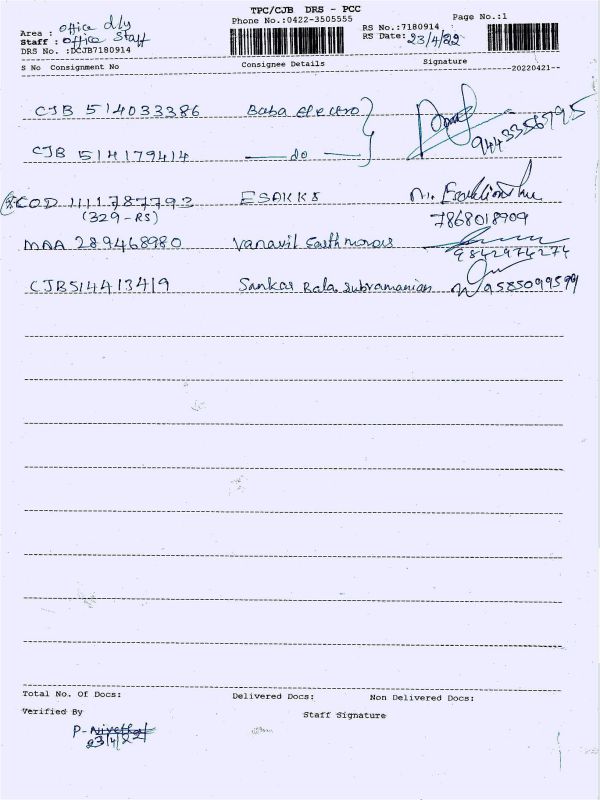 TPC/CJB DRS - PCC
Phone No.:0422-3505555 Page No.:1
Area : office dly RS No.:7180914
Staff : office staff RS Date: 23/4/22
DRS No. :DCJB7180914
S No Consignment No Consignee Details Signature
--20220421--
CJB 514033386 Baba electro
9443356795
CJB 514179414 —— do ——
COD 1111787793 ESAKKS
(329-RS) 7868018909
MAA 289468980 Vanavil Earthmovers
9842974274
CJB514413419 Sankar Bala subramanian 9585099599
Total No. Of Docs: Delivered Docs: Non Delivered Docs:
Verified By Staff Signature
P-Nivetha
23/4/22